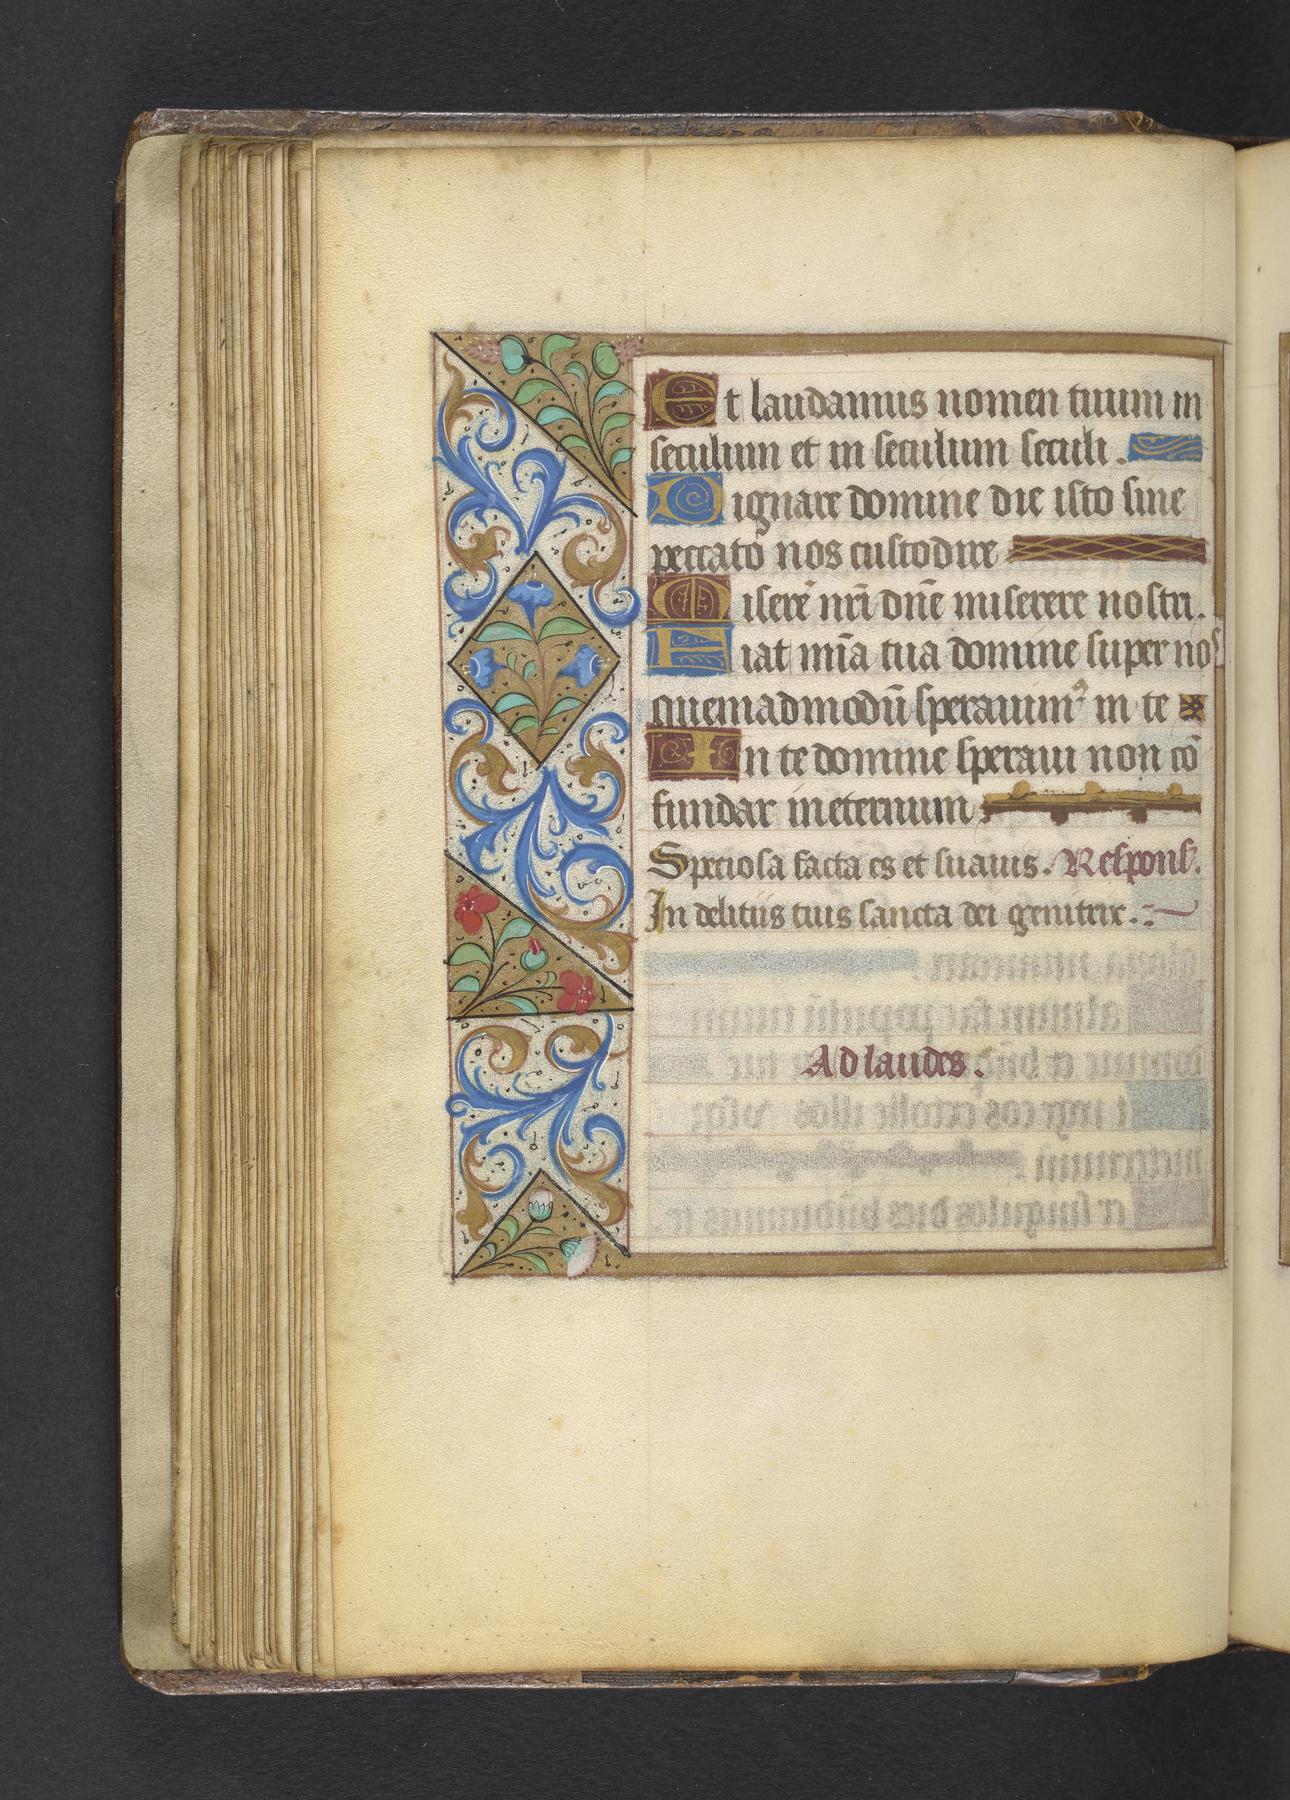 Et laudamus nomen tuum in
seculum et in seculum seculi.
Dignare domine die isto sine
peccato nos custodire
Miserē nr̄i dn̄e miserere nostri.
Fiat mīa tua domine super nos
quemadmodū sperauimꝰ in te
In te domine speraui non cō
fundar ineternum.
Speciosa facta es et suauis. Respons.
In delitiis tuis sancta dei genitrix.
Ad laudes.